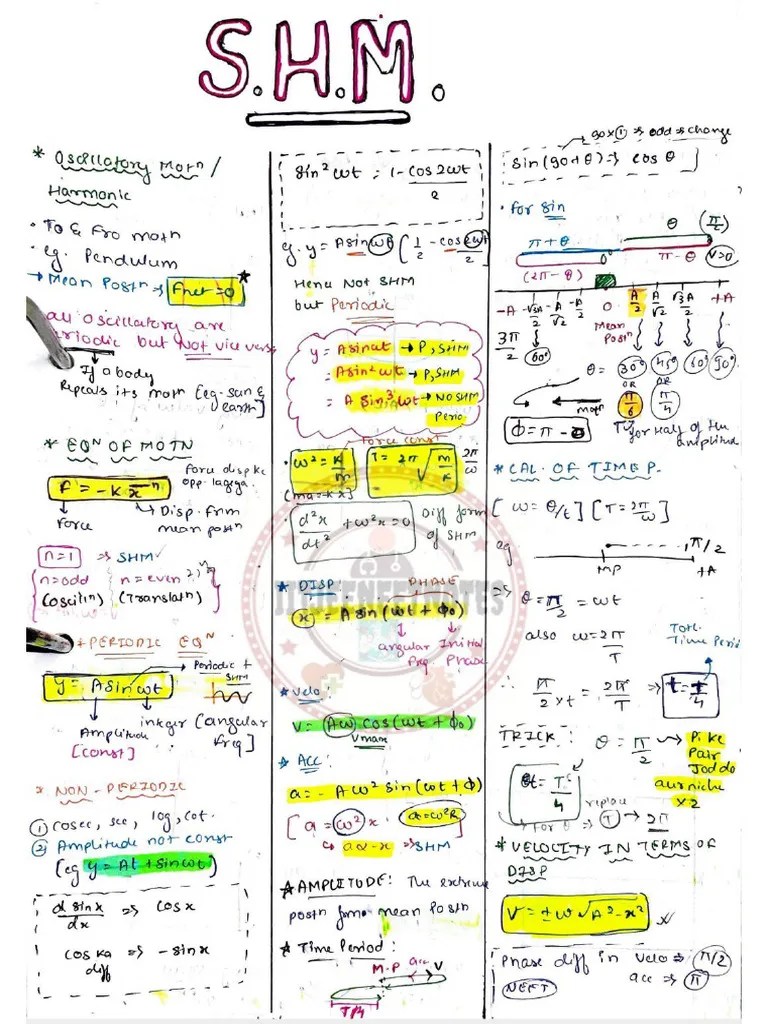 S.H.M.
* Oscillatory Motⁿ /
Harmonic
• To & Fro motn
• eg. Pendulum
→ Mean Postⁿ ⇒ Fnet = 0 *
all Oscillatory are
periodic but Not vice versa
If a body
Repeats its motn [eg-sun &
earth]
* EQᴺ OF MOTN
F = -k xⁿ
Force disp ke
opp. lagega.
Force
Disp. frm
mean postn
n=1 ⇒ SHM
n = odd
(Oscillⁿ)
n = even
(Translatⁿ)
* PERIODIC EQᴺ
y = A sin ωt
Periodic +
SHM
Amplitude
[const]
integer [angular
freq]
* NON-PERIODIC
① cosec, sec, log, cot.
② Amplitude not const
(eg y = At + sin ωt)
d sin x / dx ⇒ cos x
cos ka
diff ⇒ - sin x
sin² ωt = 1 - cos 2ωt / 2
eg. y = A sin ωt [1/2 - cos 2ωt / 2]
Hence Not SHM
but Periodic
y = A sin ωt → P, SHM
= A sin² ωt → P, SHM
= A sin³ ωt → NO SHM
Perio
Force const
ω² = k/m
T = 2π √m/k
2π/ω
[ma = -kx]
d²x/dt² + ω²x = 0
Diff form
of SHM
* DISP:
PHASE
x = A sin (ωt + ϕ₀)
angular
frq
Initial
Phase
* Velo:
V = Aω cos (ωt + ϕ₀)
Vmax
* Acc:
a = - Aω² sin (ωt + ϕ)
[a = ω² x
a = ω²R
a α - x ⇒ SHM
* AMPLITUDE: The extreme
postn from mean Postn
* Time Period:
M.P
acc
V
T/4
90 x ① ⇒ odd ⇒ change
sin (90 + θ) ⇒ cos θ
• For sin
π + θ
θ
(2π - θ)
0°
π - θ
V=0
-A
-√3A/2
-A/√2
-A/2
0
A/2
A/√2
√3A/2
+A
3π/2
60°
Mean
Postn
θ = 30° 45° 60° 90°
OR OR
π/6 π/4
motn
ϕ = π - θ
for half of the
amplitude
* CAL. OF TIME P.
[ω = θ/t] [T = 2π/ω]
eg
π/2
MP
+A
⇒ θ = π/2 = ωt
also ω = 2π/T
Total
Time Period
∴ π/2 x t = 2π/T ⇒ t = T/4
TRICK: θ = π/2
Pi ke
Pair
Jod do
aur niche
x 2
t = T/4
replace
For θ ⇒ T → 2π
* VELOCITY IN TERMS OF
DISP
V = ± ω √A² - x²
Phase diff in velo ⇒ π/2
acc ⇒ π
NEET